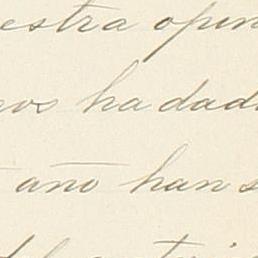 estra opin
nos ha dad
año han s